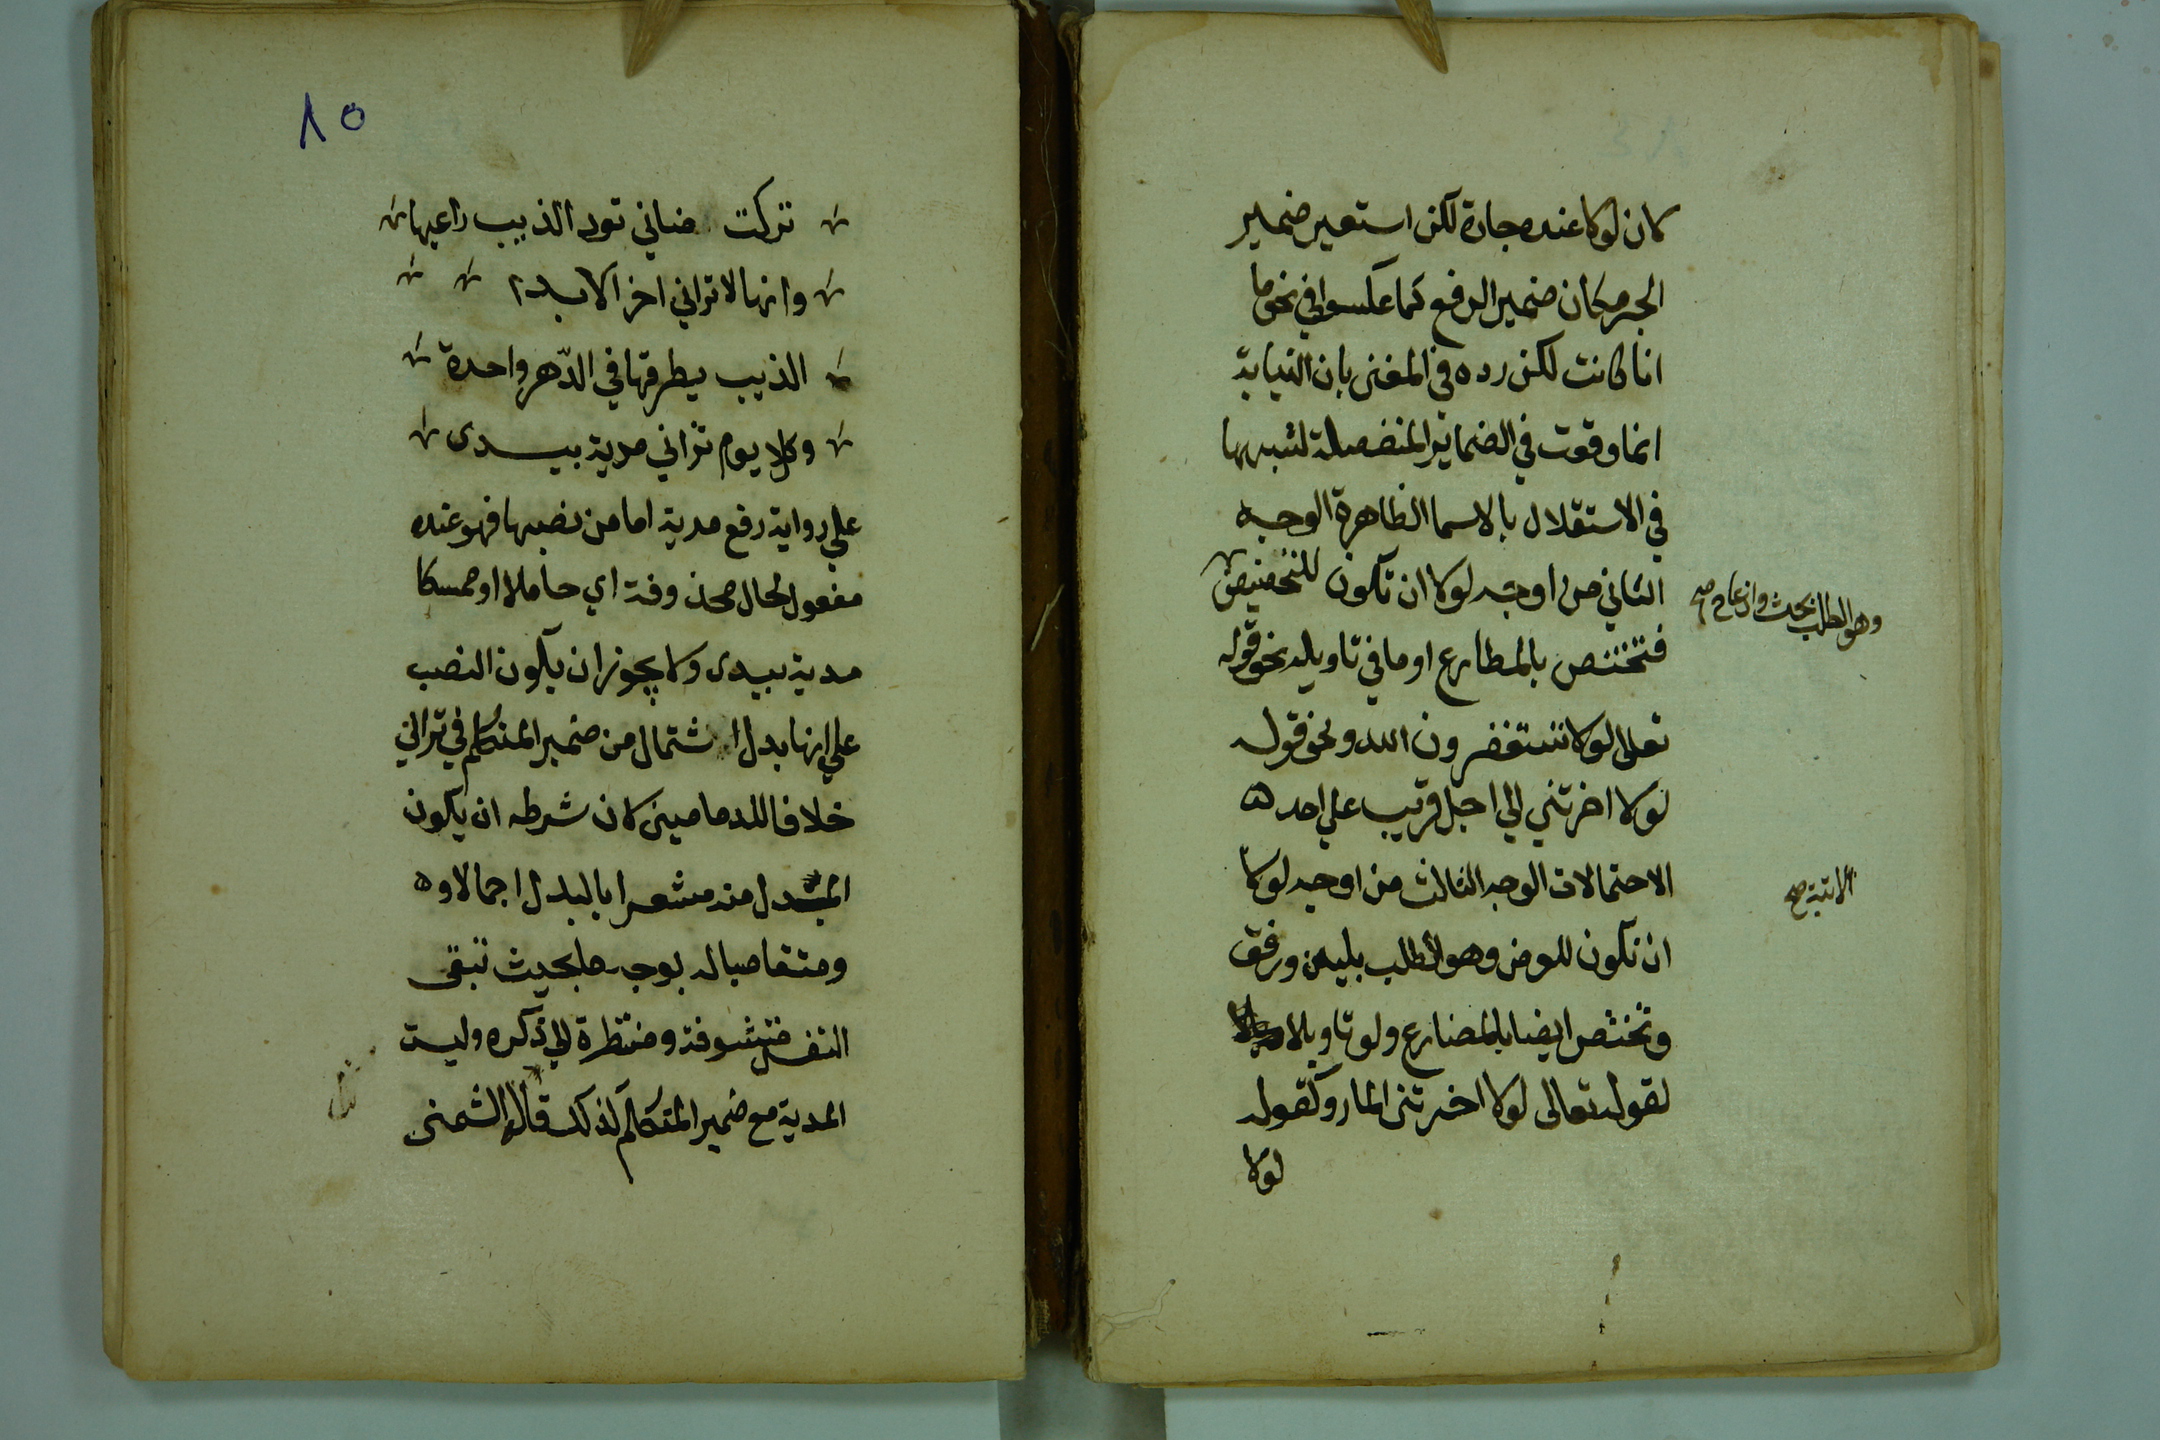 كان لولا عنده جارة لكن استعير ضمير
الجر مكان ضمير الرفع كما عكسوا في نحو ما
انا كانت لكن رده في المغني بان النيابة
انما وقعت في الضماير المنفصلة لشبهها
في الاستقلال بالاسما الظاهرة الوجه
الثاني من اوجه لولا ان تكون للتحضيض
وهو الطلب بحث وازعاج صح
فتختص بالمضارع او ما في تاويله نحو قوله
تعلى لولا تستغفرون الله ونحو قوله
لولا اخرتني الي اجل قريب علي احد
الاتية صح
الاحتمالات الوجه الثالث من اوجه لولا
ان تكون للعرض وهو الطلب بلين ورفق
وتختص ايضا بالمضارع ولو تاويلا
لقوله تعالى لولا اخرتني المار وكقوله
لولا
٨٥
تركت ضاني تود الذيب راعيها
وانها لا تراني اخر الابد
الذيب يطرقها في الدّهر واحدة
وكل يوم تراني مدية بيدى
علي رواية رفع مدية اما من نصبها فهو عنده
مفعول لحال محذوفة اي حاملا او ممسكا
مدية بيدى ولا يجوز ان يكون النصب
علي انها بدل اشتمال من ضمير المتكلم في تراني
خلافا للدمامينى لان شرطه ان يكون
المبدل منه مشعرا بالبدل اجمالا و
ومتقاضيا له بوجه ما بحيث تبقى
النفس متشوفة ومنتظرة الي ذكره وليست
المدية مع ضمير المتكلم كذلك قاله الشمنى